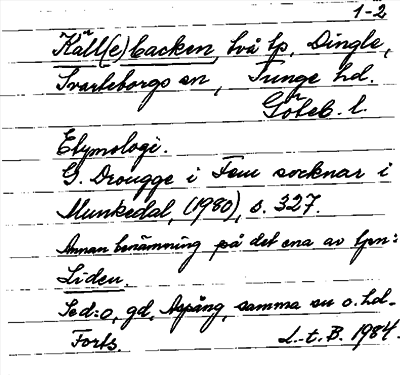 1-2
Käll(e)backen, två lp, Dingle,
Svarteborgs sn, Tunge hd.
Göteb. l.
Etymologi.
G. Drougge i Fem socknar i
Munkedal, (1980), s. 327.
Annan benämning på det ena av lpn:
Liden.
Se d:o, gd, Aspång, samma sn o. hd.
Forts. L.-t. B. 1984.